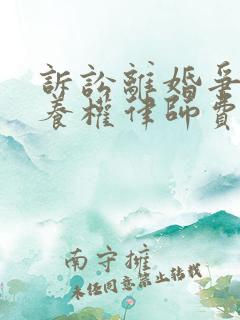 訴訟離婚爭
養權律師費
南守擁
未經同意禁止轉載